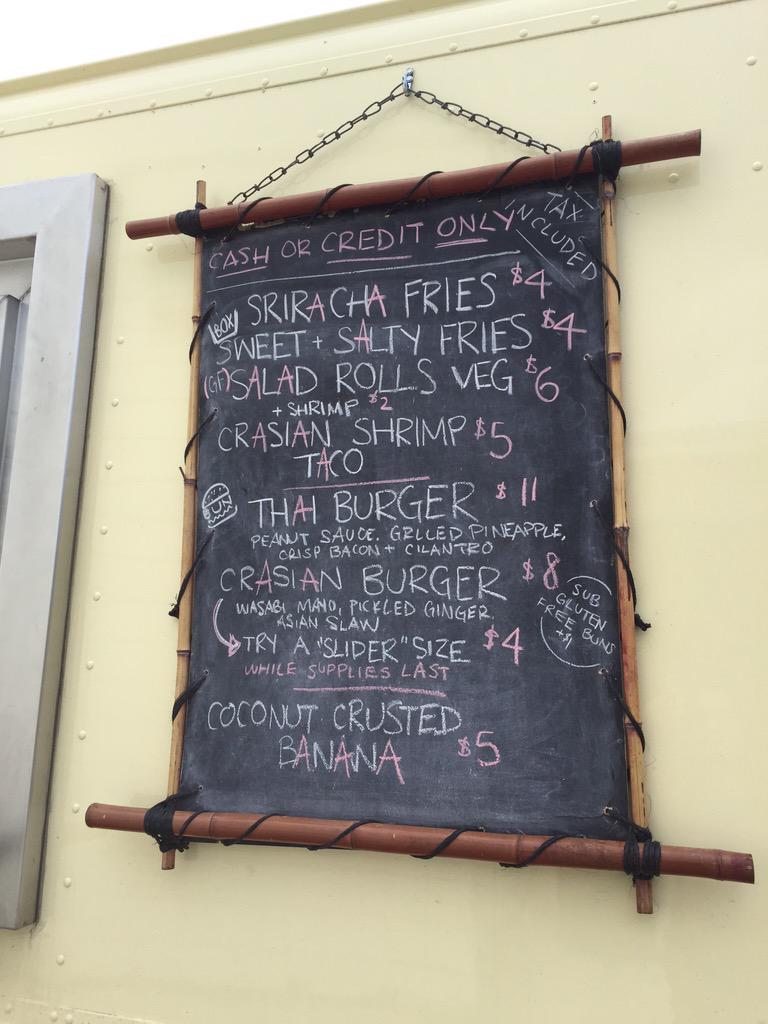 CASH OR CREDIT ONLY
TAX
INCLUDED
SRIRACHA FRIES $4
BOX
SWEET + SALTY FRIES $4
(GF) SALAD ROLLS VEG $6
+ SHRIMP $2
CRASIAN SHRIMP $5
TACO
THAI BURGER $11
BUN
PEANUT SAUCE, GRLLED PINEAPPLE,
CRISP BACON + CILANTRO
CRASIAN BURGER $8
WASABI MAYO, PICKLED GINGER,
ASIAN SLAW
SUB
GLUTEN
FREE BUNS
+$1
TRY A "SLIDER" SIZE $4
WHILE SUPPLIES LAST
COCONUT CRUSTED
BANANA $5